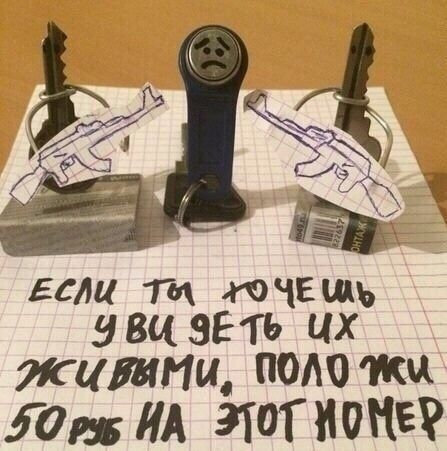 ЕСЛИ ТЫ ХОЧЕШЬ
УВИДЕТЬ ИХ
ЖИВЫМИ, ПОЛОЖИ
50 РУБ НА ЭТОТ НОМЕР